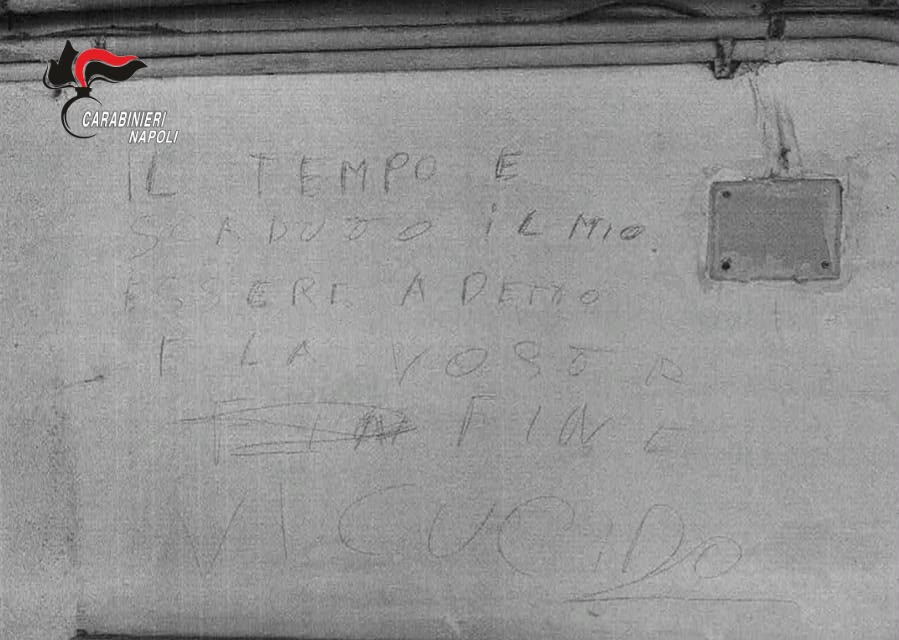 CARABINIERI
NAPOLI
IL TEMPO E
SCADUTO IL MIO
ESSERE ADEMO
E LA VOSTR
FIN FINE
VI CUCIDO